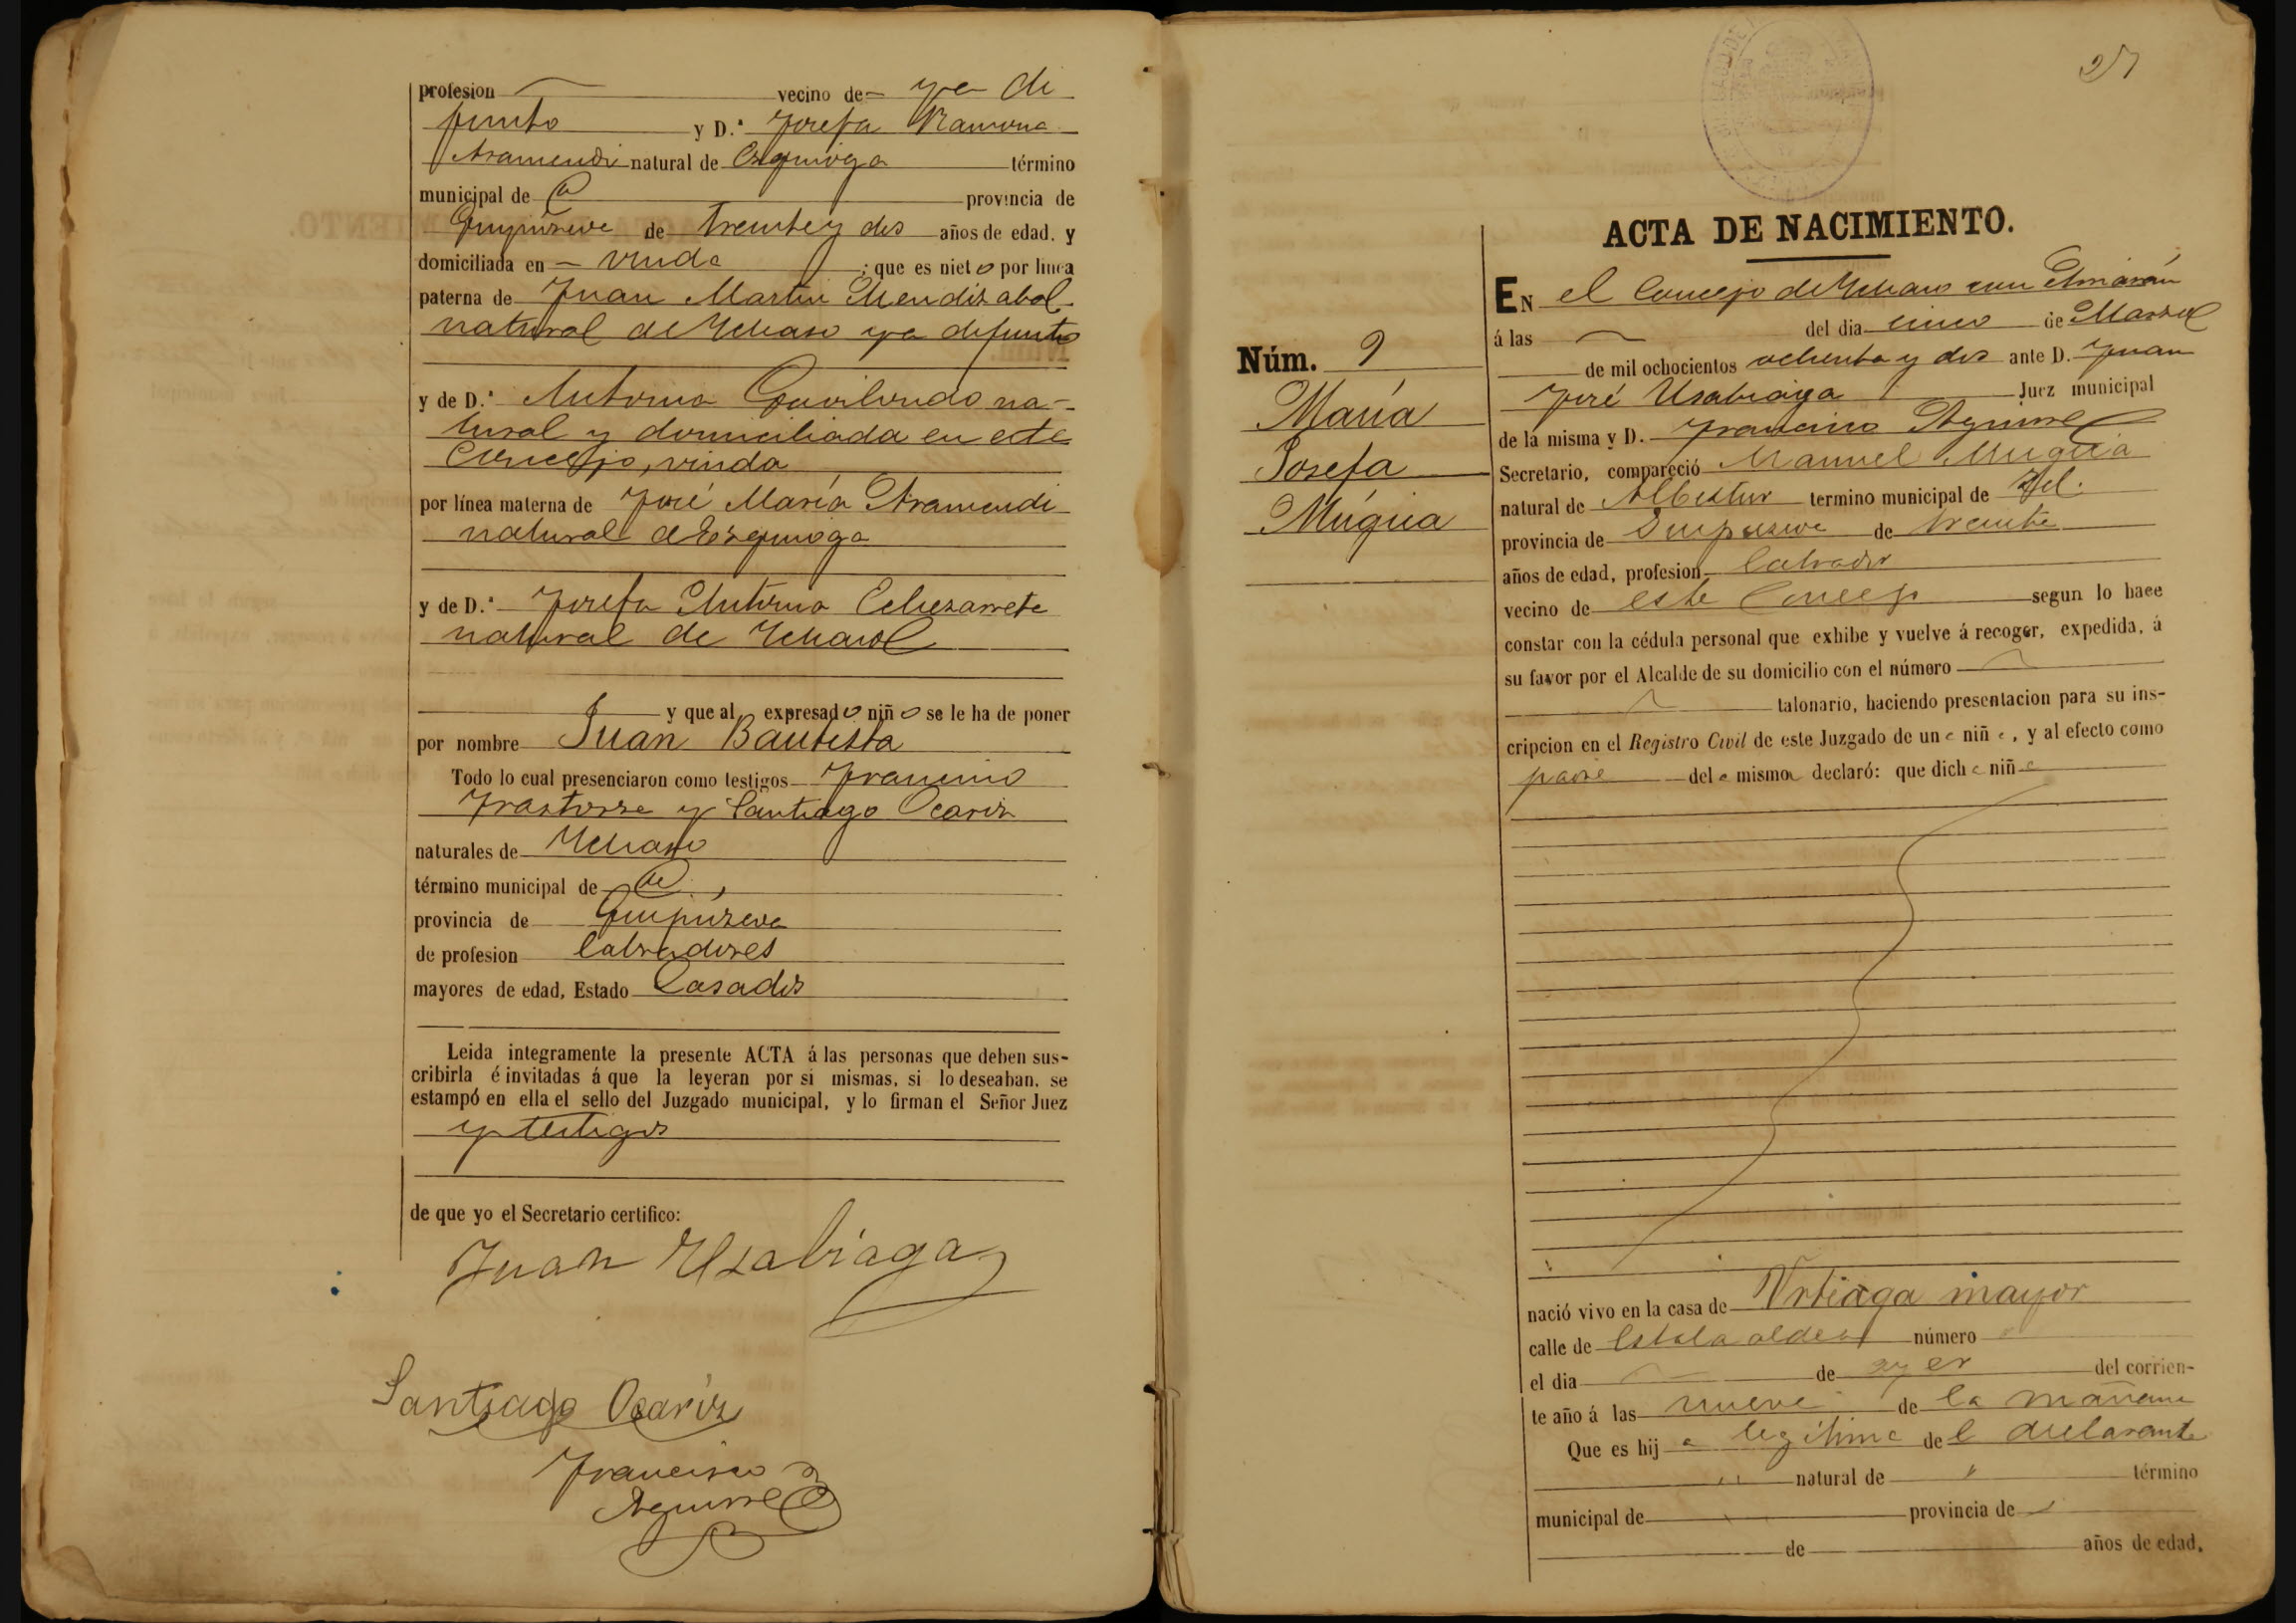 profesion vecino de ya di
funto y D.ª Josefa Ramona
Aramendi natural de Ezquioga término
municipal de provincia de
Guipúzcoa de treinta y dos años de edad, y
domiciliada en viuda ; que es nieto por linea
paterna de Juan Martin Mendizabal
natural de Ychaso ya difunto
y de D.ª Antonia Gavilondo na-
tural y domiciliada en este
Concejo, viuda
por línea materna de José María Aramendi
natural de Ezquioga
y de D.ª Josefa Antonia Echezarreta
natural de Ychaso
y que al expresado niño se le ha de poner
por nombre Juan Bautista
Todo lo cual presenciaron como testigos Francisco
Yraxtorza y Santiago Ocariz
naturales de Ychaso
término municipal de
provincia de Guipúzcoa
de profesion labradores
mayores de edad, Estado Casados
Leida integramente la presente ACTA á las personas que deben sus-
cribirla é invitadas á que la leyeran por si mismas, si lo deseaban, se
estampó en ella el sello del Juzgado municipal, y lo firman el Señor Juez
y testigos
de que yo el Secretario certifico:
Juan Usabiaga
Santiago Ocariz
Francisco
Aguirre
27
ACTA DE NACIMIENTO.
EN el Concejo de Ychaso con Arriarán
á las del dia cinco de Marzo
de mil ochocientos ochenta y dos ante D. Juan
José Usabiaga Juez municipal
de la misma y D. Francisco Aguirre
Secretario, compareció Manuel Mugica
natural de Albistur termino municipal de id.
provincia de Guipuzcoa de treinta
años de edad, profesion labrador
vecino de este Concejo segun lo hace
constar con la cédula personal que exhibe y vuelve á recoger, expedida, á
su favor por el Alcalde de su domicilio con el número
talonario, haciendo presentacion para su ins-
cripcion en el Registro Civil de este Juzgado de una niña, y al efecto como
padre de la misma declaró: que dicha niña
Núm. 9
María
Josefa
Múgica
nació vivo en la casa de Urtiaga mayor
calle de esta aldea número
el dia de ayer del corrien-
te año á las nueve de la mañana
Que es hija legítima del declarante
natural de término
municipal de provincia de
de años de edad,